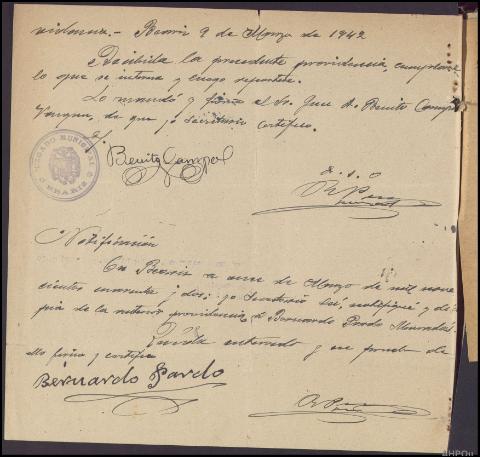 videncia.- Bearis 9 de Marzo de 1942
Recibida la precedente providencia, cumplase
lo que se interesa y luego reportese.
Lo mandó y firma el Sr. Juez D. Benito Campo
de que yo Secretario certifico.
JUZGADO MUNICIPAL
BEARIZ
Benito Campo
Notificación
En Bearis a once de Marzo de mil nove
cientos cuarenta y dos; yo Secretario lei, notifiqué y di co
pia de la anterior providencia a Bernardo Pardo
Queda enterado y en prueba de
ello firma y certifico
Bernardo Pardo
AHPOu